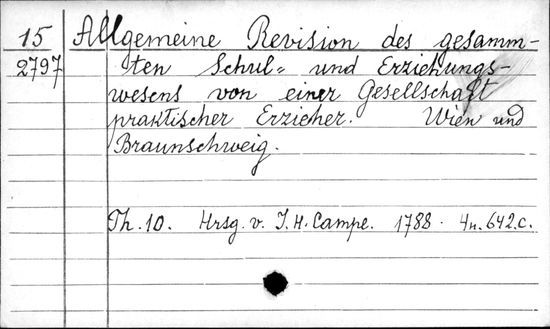 15 Allgemeine Revision des gesamm-
2797 ten Schul= und Erziehungs-
wesens von einer Gesellschaft
praktischer Erzieher. Wien und
Braunschweig.
Th. 10. Hrsg. v. J. H. Campe. 1788. 4n. 642. c.